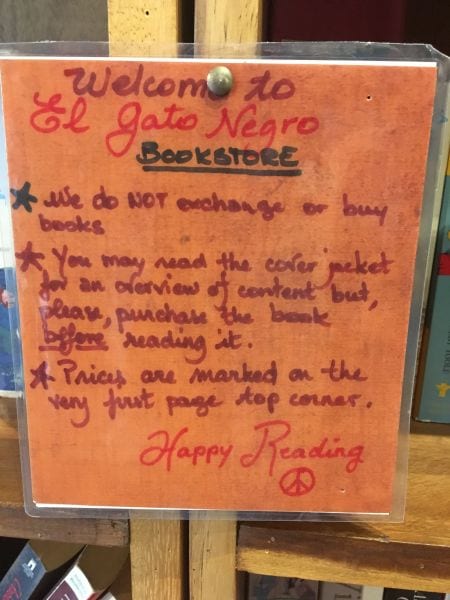 Welcome to
El Gato Negro
BOOKSTORE
We do NOT exchange or buy
books
You may read the cover jacket
for an overview of content but,
please, purchase the book
before reading it.
Prices are marked on the
very first page top corner.
Happy Reading